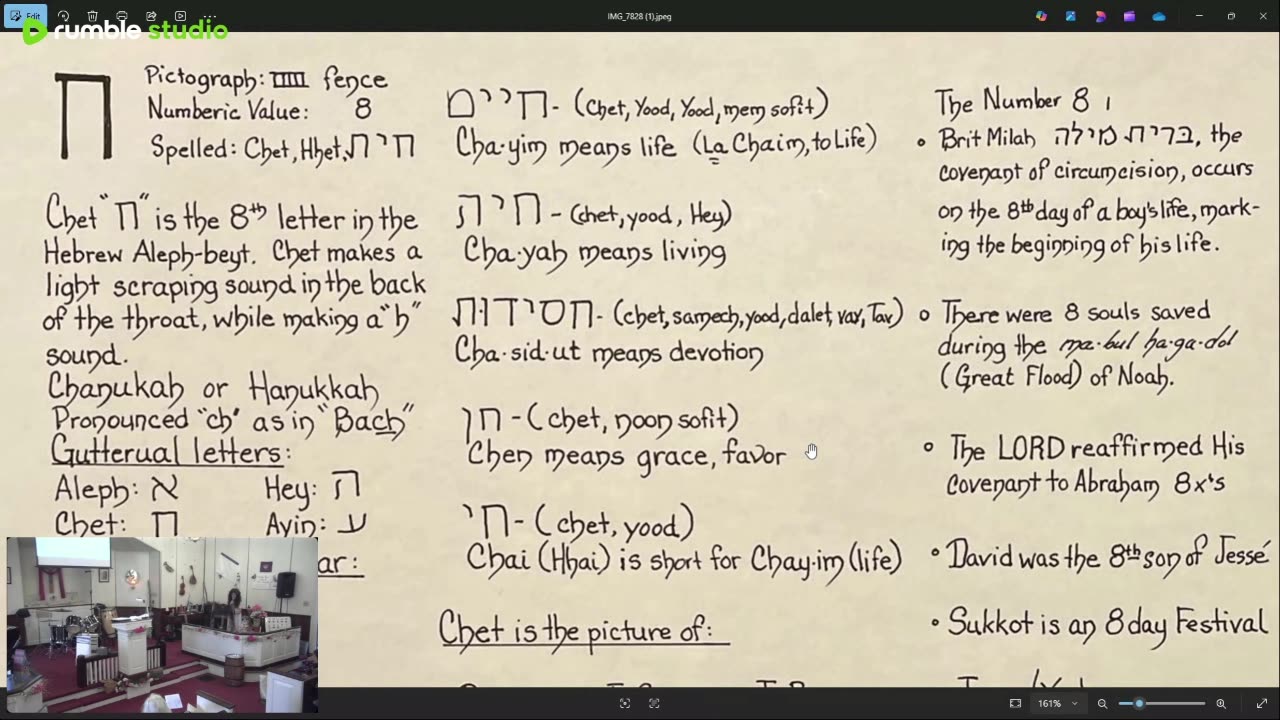 Edit
IMG_7828 (1).jpeg
rumble studio
ח
Pictograph: fence
Numberic Value: 8
Spelled: Chet, Hhet, חית
Chet "ח" is the 8th letter in the
Hebrew Aleph-beyt. Chet makes a
light scraping sound in the back
of the throat, while making a "h"
sound.
Chanukah or Hanukkah
Pronounced "ch" as in "Bach"
Gutterual letters:
Aleph: א Hey: ה
Chet: ח Ayin: ע
ar:
חיים - (Chet, Yood, Yood, mem sofit)
Cha·yim means life (La Chaim, to Life)
חיה - (chet, yood, Hey)
Cha·yah means living
חסידות - (chet, samech, yood, dalet, vav, Tav)
Cha·sid·ut means devotion
חן - (chet, noon sofit)
Chen means grace, favor
חי - (chet, yood)
Chai (Hhai) is short for Chay·im (life)
Chet is the picture of:
The Number 8
• Brit Milah ברית מילה, the
covenant of circumcision, occurs
on the 8th day of a boy's life, mark-
ing the beginning of his life.
• There were 8 souls saved
during the ma·bul ha·ga·dol
(Great Flood) of Noah.
• The LORD reaffirmed His
Covenant to Abraham 8x's
• David was the 8th son of Jessé
• Sukkot is an 8 day Festival
161%